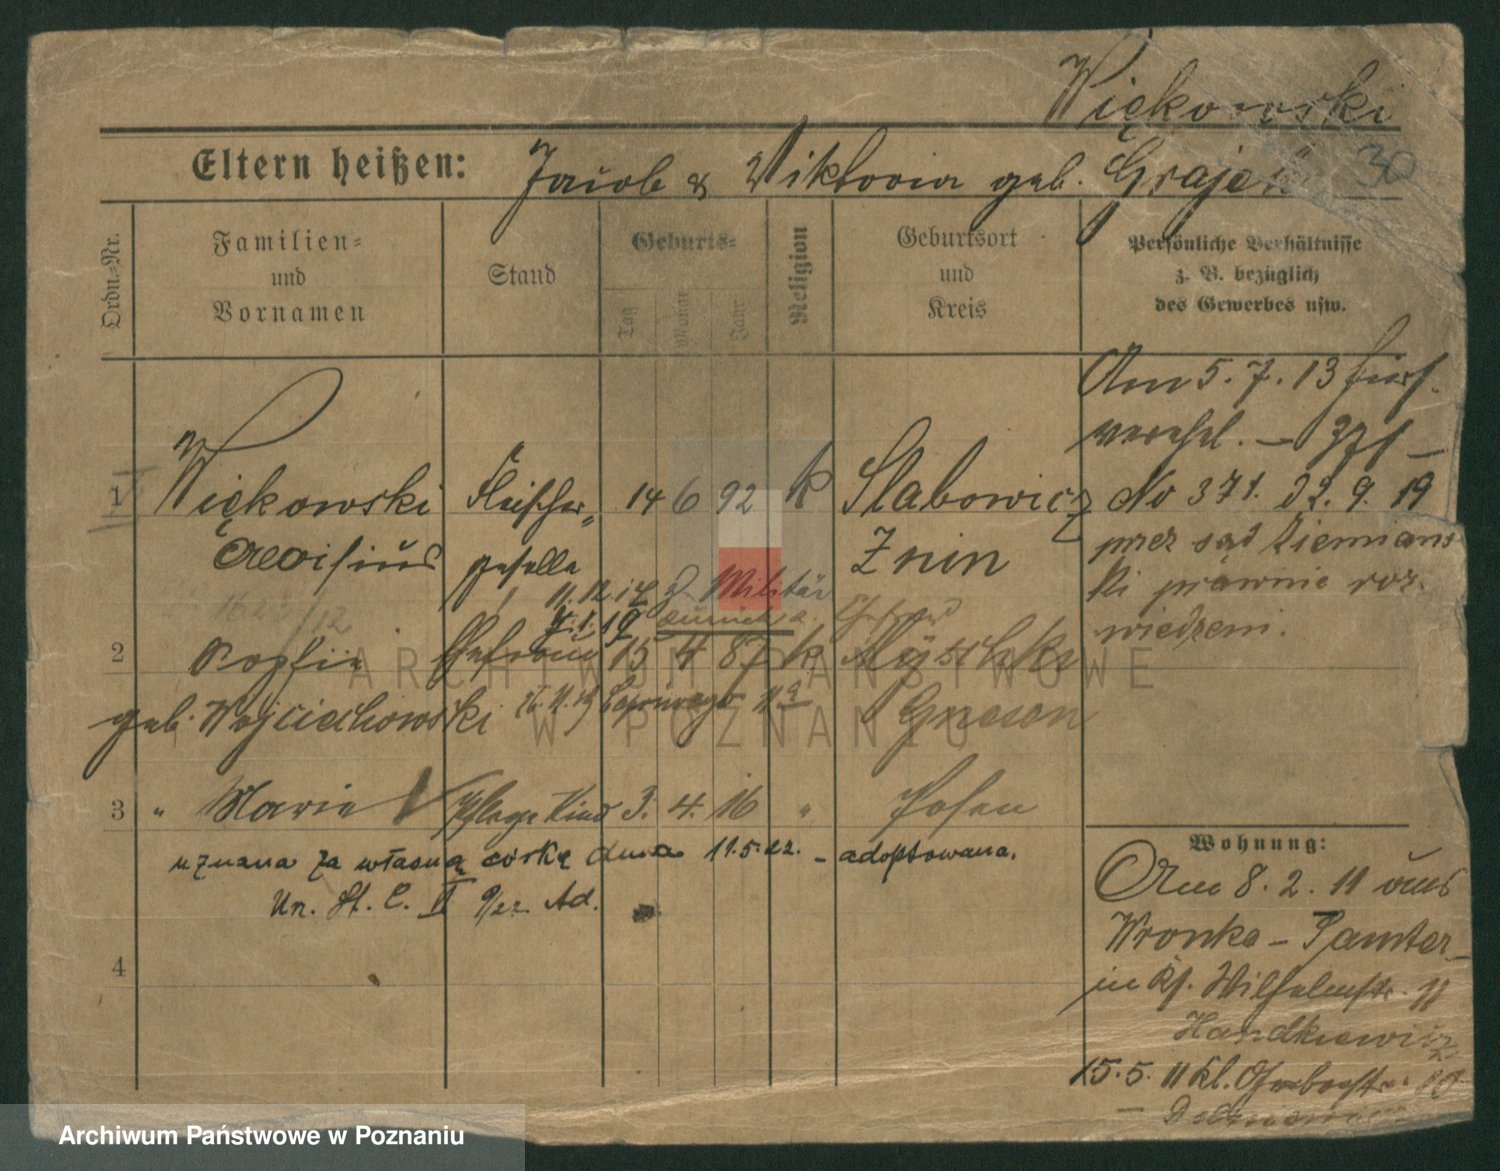 Więkowski
Eltern heißen: Jacob & Viktoria geb. Grajek 30
Ordn.=Nr.
Familien= und Vornamen
Stand
Geburts=
Tag
Monat
Jahr
Religion
Geburtsort und Kreis
Persönliche Verhältnisse
z. B. bezüglich
des Gewerbes usw.
Am 5. 7. 13
371
1 Więkowski Fleischer= 14 6 92 k Slabowicz
No 371. 22. 9. 19
Aloisius geselle Znin
przez sąd Ziemians
11. 12. 14 z. Militär
ki prawnie roz-
7. 1. 19 zurück
wiedzeni.
2 Sophie Ehefrau 15 4 87 k
geb. Wojciechowski Gnesen
3 " Marie Pflege Kind 3. 4. 16 " Posen
uznana za własną córkę dnia 11.5.22. - adoptowana.
Un. St. C. II Ad.
4
Wohnung:
Am 8. 2. 11 aus
Wronke - Samter
in Wilhelmstr. 11
Handkiewicz
15. 5. 11 kl. Gerberstr. 10
ARCHIWUM PAŃSTWOWE
W POZNANIU
Archiwum Państwowe w Poznaniu